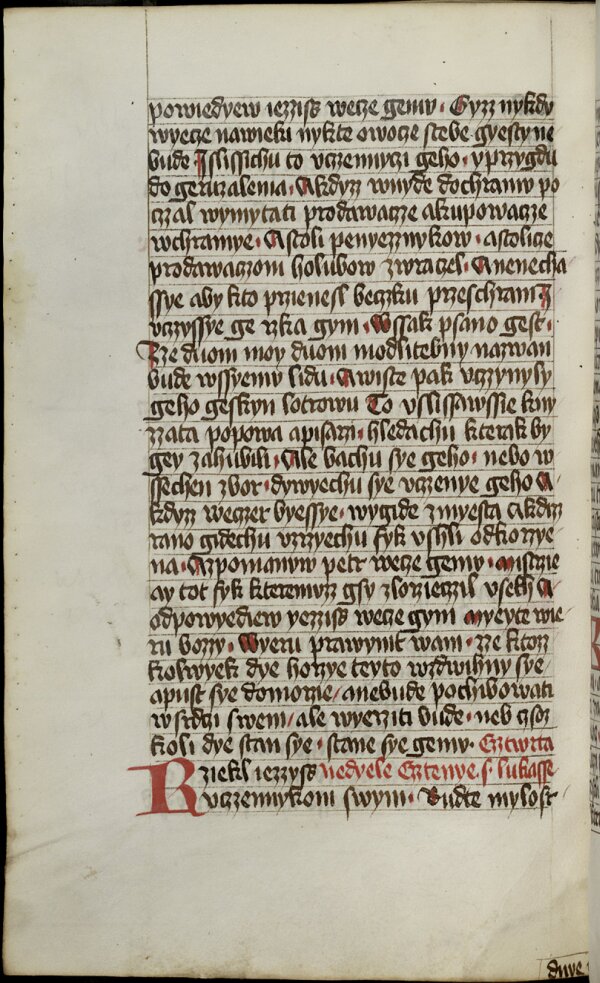 powiedyew iezziss wecze gemv · Gyzz nykdy
wyecze nawieky nykte owocze stebe gyesty ne
bude Islissichu to vczennyczi geho · yprzygdu
do geruzalema · Akdyzz wnyde dochramv po
czal wymytati prodawacze akupowacze
wchramye · Astoli penyeznykow · astolicze
prodawaczom holubow zwraczel · Anenecha
ssye aby kto przienesl beczku przeschram J
vczyssye ge rzka gym · Wssak psano gest ·
Zze duom moy duom modlitebny nazwan
bude wssyemv lidu · Awiste pak vczynyly
geho geskyn lotrowu To vslissawssie kny
zzata popowa apisarzi · hledachu kterak by
gey zahubili · Ale bachu sye geho · nebo w
ssechen zbor · dywyechu sye vczenye geho A
kdyzz weczer byessye · wygide zmyesta Akdizz
rano gidechu vzrzyechu fyk vshli odkorzye
na · Azpomanvw petr wecze gemv · mistrzie
ay tot fyk kteremvzz gsy zlorzieczil vsech A
odpowyediew yezziss wecze gym myeyte wie
ru bozzy · Wyeru prawymt wam · zze ktozz
kolwyek dye horzye teyto wzdwihny sye
apust sye domorzie / anebude pochibowati
wsrdczi swem / ale wyerziti bude · neb czoz
koli dye stan sye · stane sye gemv · Cztwrta
Rziekl iezzyss nedyele Cztenye · s · lukasse
vczzennykom swym · Budte mylosr
duve